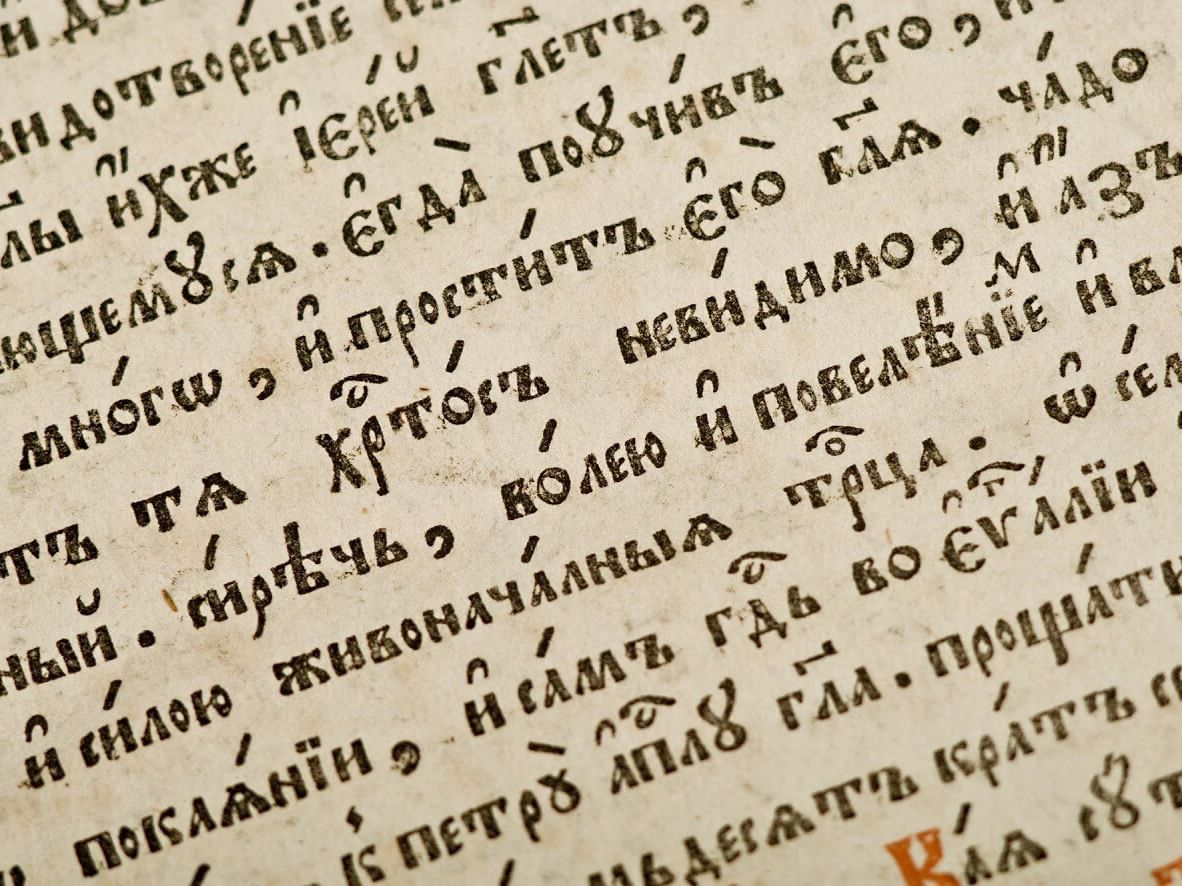 и до
видотворенїе
лы и҆́хже і҆ере́й гл҃етъ ,
ющемꙋсѧ . є҆гда̀ поꙋчи́въ є҆го̀ , и
мно́гѡ , и҆ прости́тъ є҆го̀ гл҃ѧ . ча́до
тъ тѧ хрⷭ҇то́съ неви́димо , и҆ а҆́зъ
ный . си́рѣчь , во́лею и҆ повелѣ́нїеⷨ и҆ вл
и҆ си́лою живонача́лныѧ трⷪ҇ца . ѡ҆ се́л
покаѧ́нїи , и҆ са́мъ гдⷭ҇ь во є҆ѵⷢ҇а́лїи
к петрꙋ̀ а҆пⷭ҇лꙋ гл҃а . проща́ти
мьдесѧтъ кра́тъ се
Ка́ѧ сꙋт